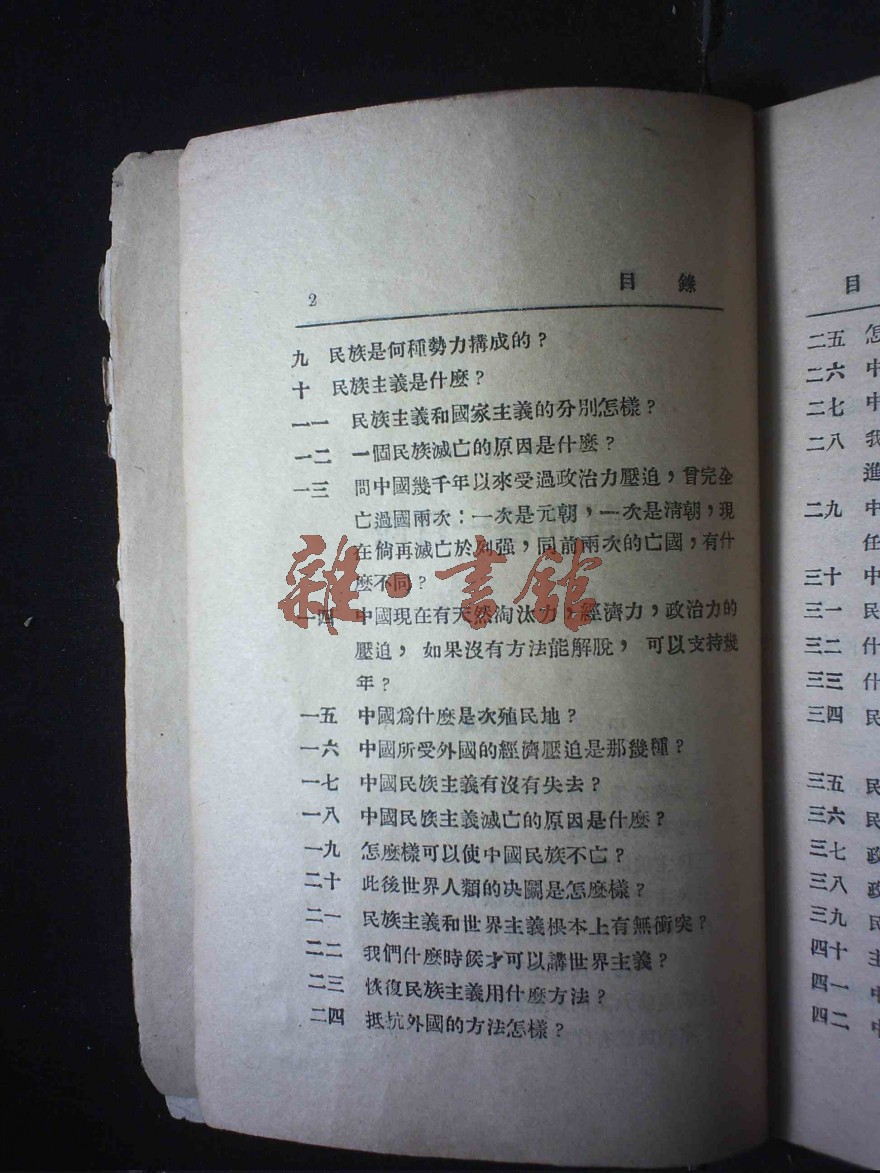 2
目 錄
九 民族是何種勢力構成的？
十 民族主義是什麼？
一一 民族主義和國家主義的分別怎樣？
一二 一個民族滅亡的原因是什麼？
一三 問中國幾千年以來受過政治力壓迫，曾完全
亡過國兩次：一次是元朝，一次是清朝，現
在倘再滅亡於列强，同前兩次的亡國，有什
麼不同？
一四 中國現在有天然淘汰力，經濟力，政治力的
壓迫，如果沒有方法能解脫，可以支持幾
年？
一五 中國爲什麼是次殖民地？
一六 中國所受外國的經濟壓迫是那幾種？
一七 中國民族主義有沒有失去？
一八 中國民族主義滅亡的原因是什麼？
一九 怎麼樣可以使中國民族不亡？
二十 此後世界人類的決鬭是怎麼樣？
二一 民族主義和世界主義根本上有無衝突？
二二 我們什麼時候才可以講世界主義？
二三 恢復民族主義用什麼方法？
二四 抵抗外國的方法怎樣？
雜·書館
目
二五 怎
二六 中
二七 中
二八 我
進
二九 中
任
三十 中
三一 民
三二 什
三三 什
三四 民
三五 民
三六 民
三七 政
三八 政
三九 民
四十 主
四一 中
四二 中